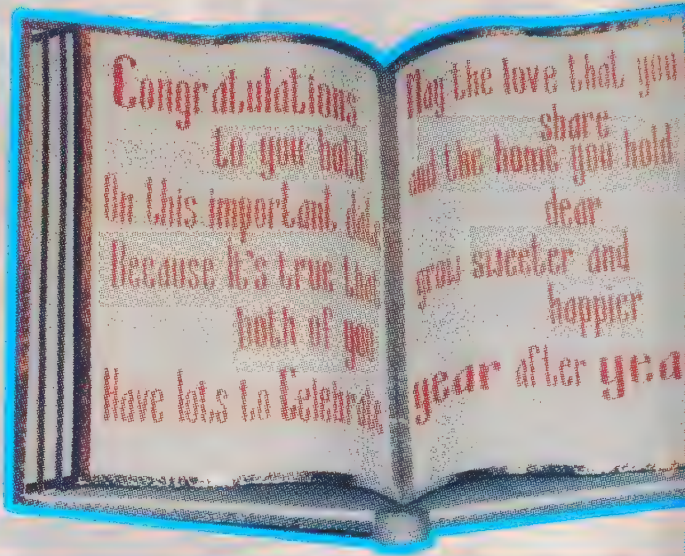 Congratulations
to you both
On this important date
Because it's true that
both of you
Have lots to Celebrate
May the love that you
share
and the home you hold
dear
grow sweeter and
happier
year after yea